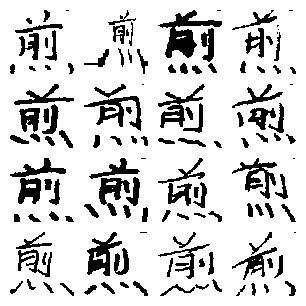 煎煎煎煎
煎煎煎煎
煎煎煎煎
煎煎煎煎